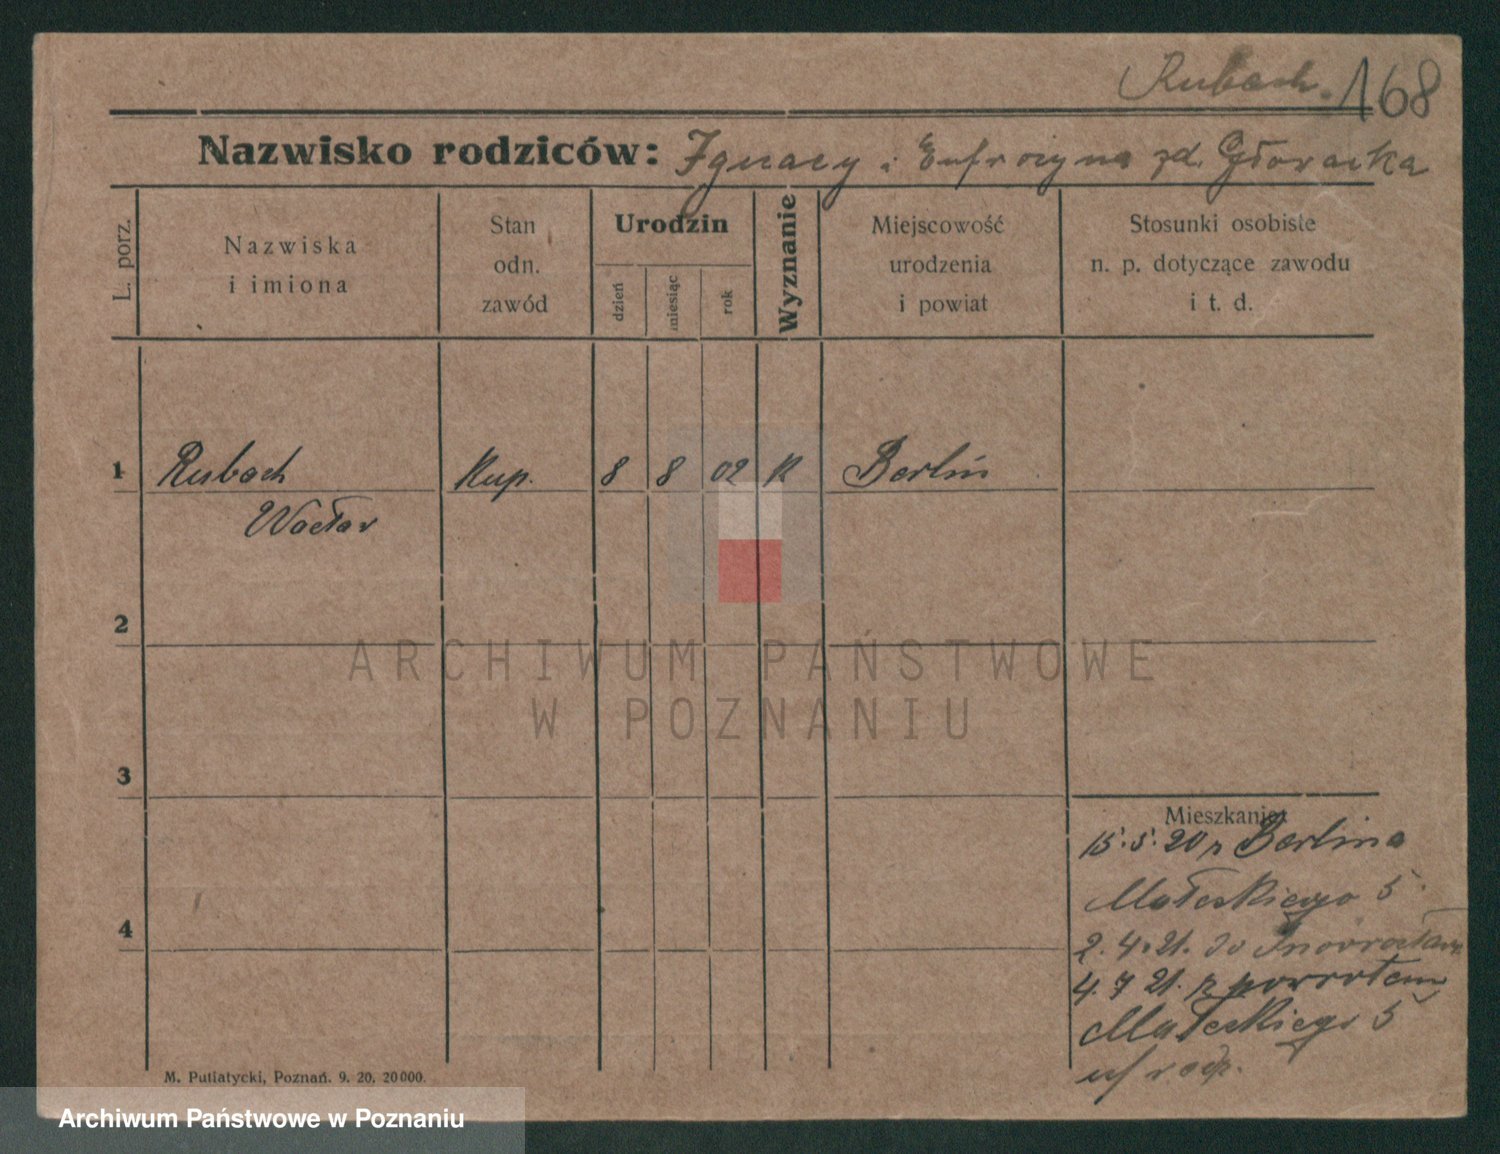 Rubach. 168
Nazwisko rodziców: Ignacy i Eufrozyna zd. Głowacka
L. porz.
Nazwiska
i imiona
Stan
odn.
zawód
Urodzin
dzień
miesiąc
rok
Wyznanie
Miejscowość
urodzenia
i powiat
Stosunki osobiste
n. p. dotyczące zawodu
i t. d.
1 Rubach Kup. 8 8 02 K Berlin
Wacław
2
ARCHIWUM PAŃSTWOWE
W POZNANIU
3
Mieszkanie:
15.5.20 z Berlina
Małeckiego 5
4
2.4.21. do Inowrocławia
4.7 21. z powrotem
Małeckiego 5
M. Putiatycki, Poznań. 9. 20. 20000.
Archiwum Państwowe w Poznaniu